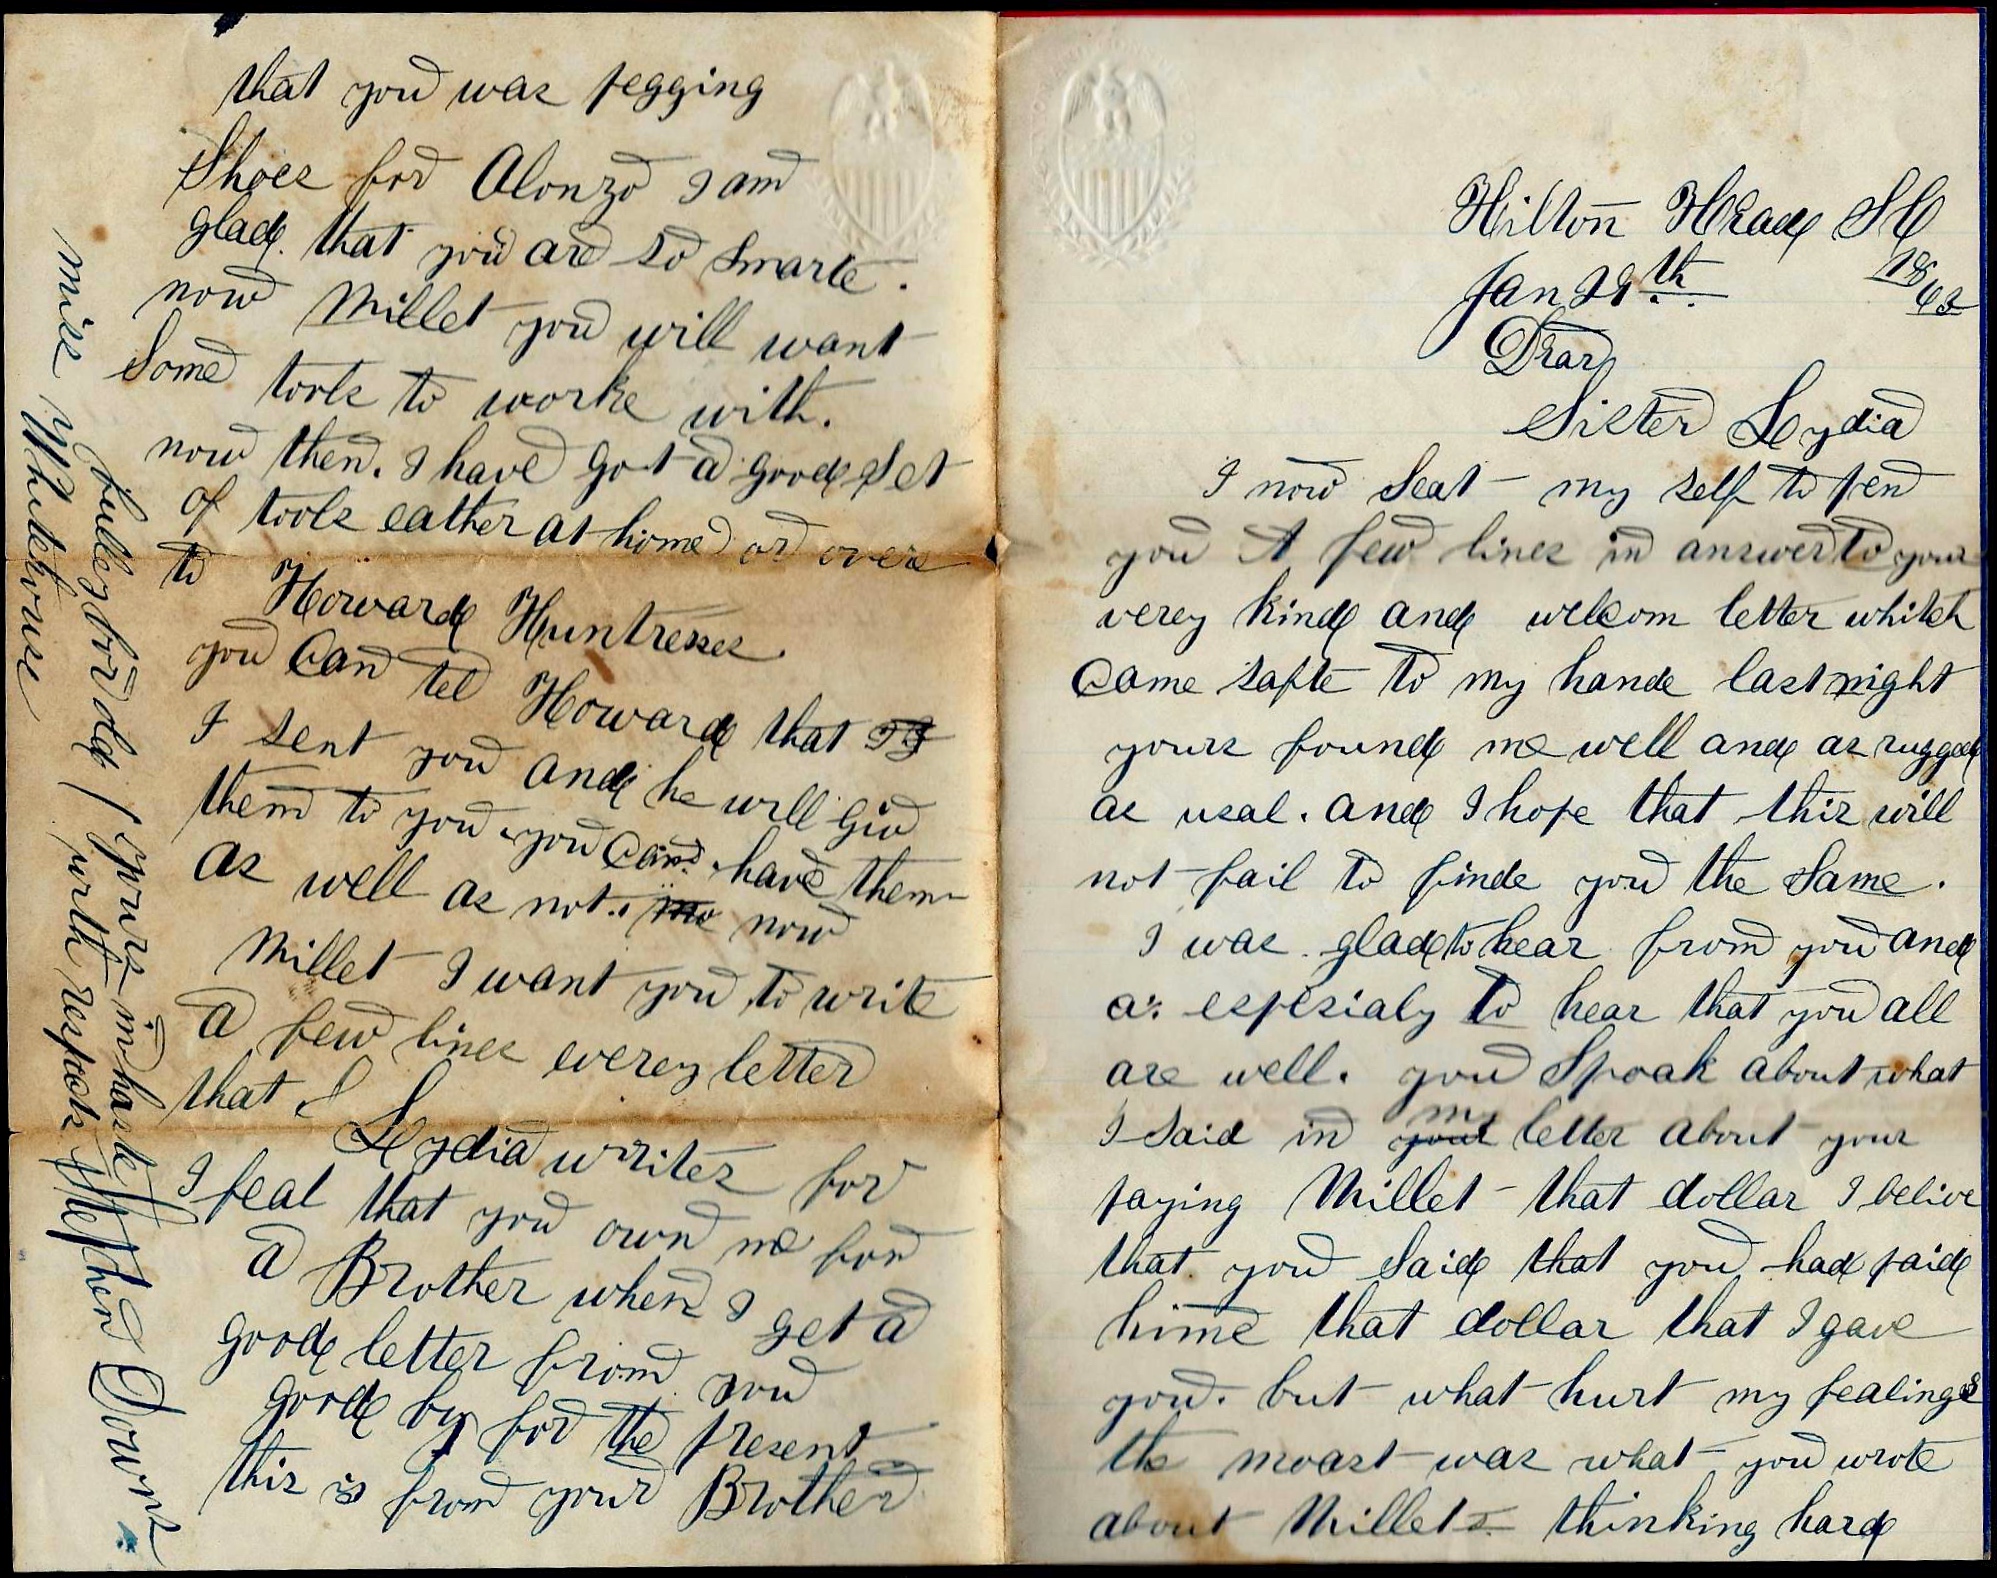 Hilton Head SC
Jan 29th 1862
Dear
Sister Lydia
I now Seat my self to pen
you A few lines in answer to your
verey kind and welcom letter whitch
Came safte to my hande last night
yours found me well and as rugged
as usal. and I hope that this will
not fail to finde you the Same.
I was glad to hear from you and
as espesialy to hear that you all
are well. you Spoak about what
I Said in my letter about your
paying Millet that dollar I belive
that you Said that you had paid
hime that dollar that I gave
you. but what hurt my fealings
the moast was what you wrote
about Millets thinking hard
that you was pegging
Shoes for Alonzo I am
glad that you are so Smarte.
now Millet you will want
Some tools to worke with.
now then. I have got a good Set
of tools eather at home or over
to Howard Huntresses.
you Can tel Howard that
I sent you and he will giv
them to you. you Can have them
as well as not. now
Millet I want you to write
a few lines everey letter
that Lydia writes for
I feal that you own me for
a Brother when I get a
good letter from you
good by for the present
this is from your Brother
yours in haste
with respects Stephen Downs
miss Whitehouse